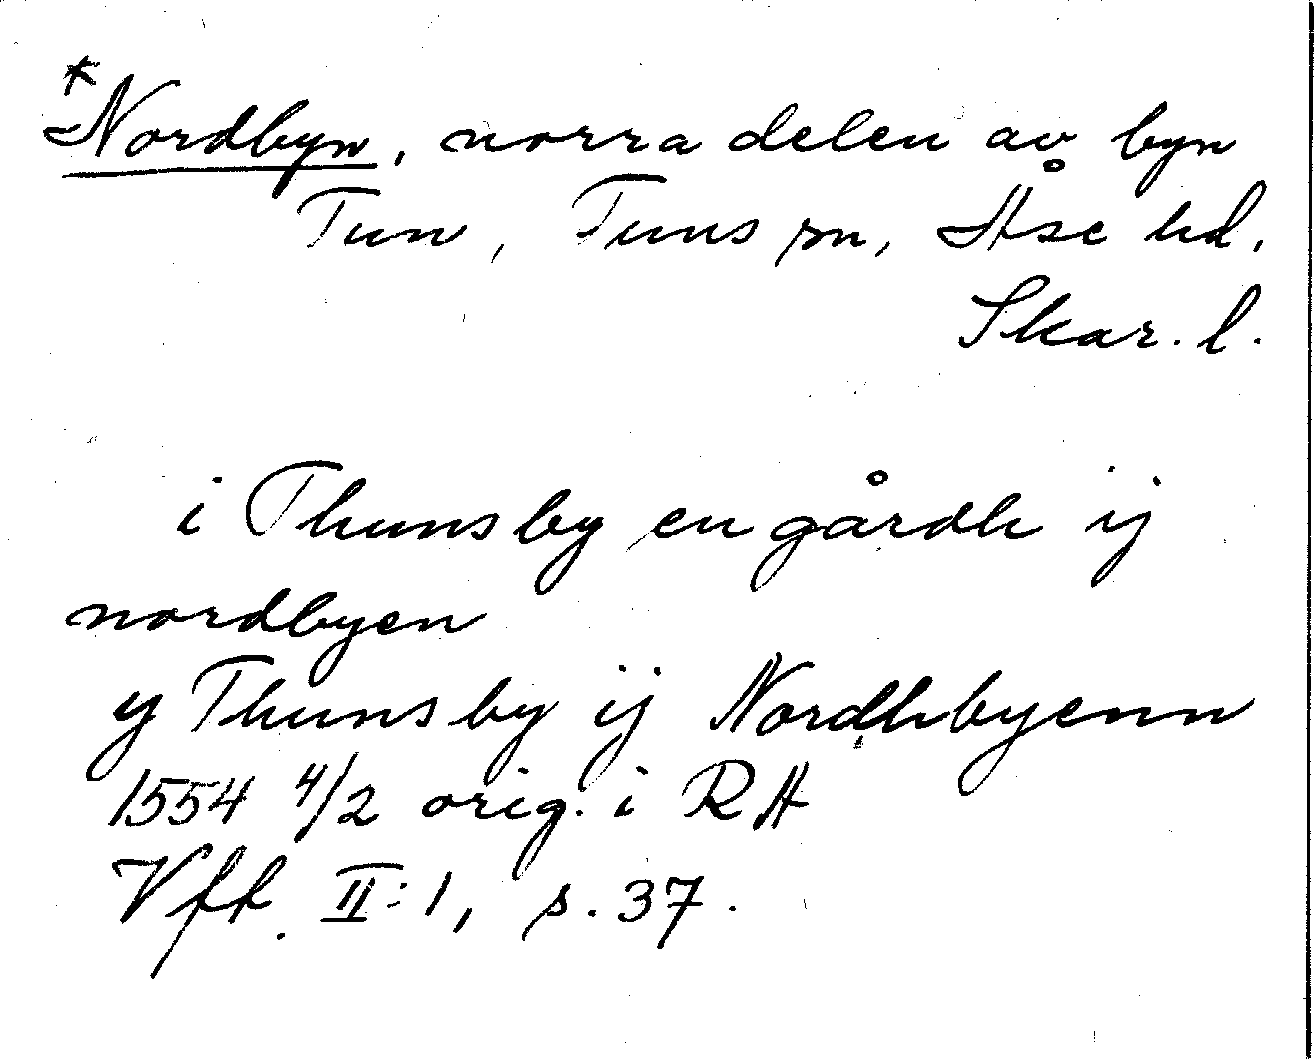 *Nordbyn, norra delen av byn
Tun, Tuns sn, Åse hd,
Skar. l.
i Thunsby en gårdh ij
nordbyen
y Thunsby ij Nordhbyenn
1554 4/2 orig. i RA
Vff. II:1, s. 37.